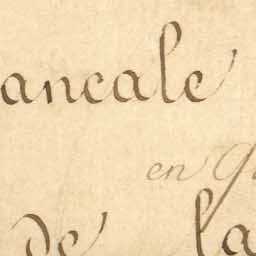 ancale
en qu
de la